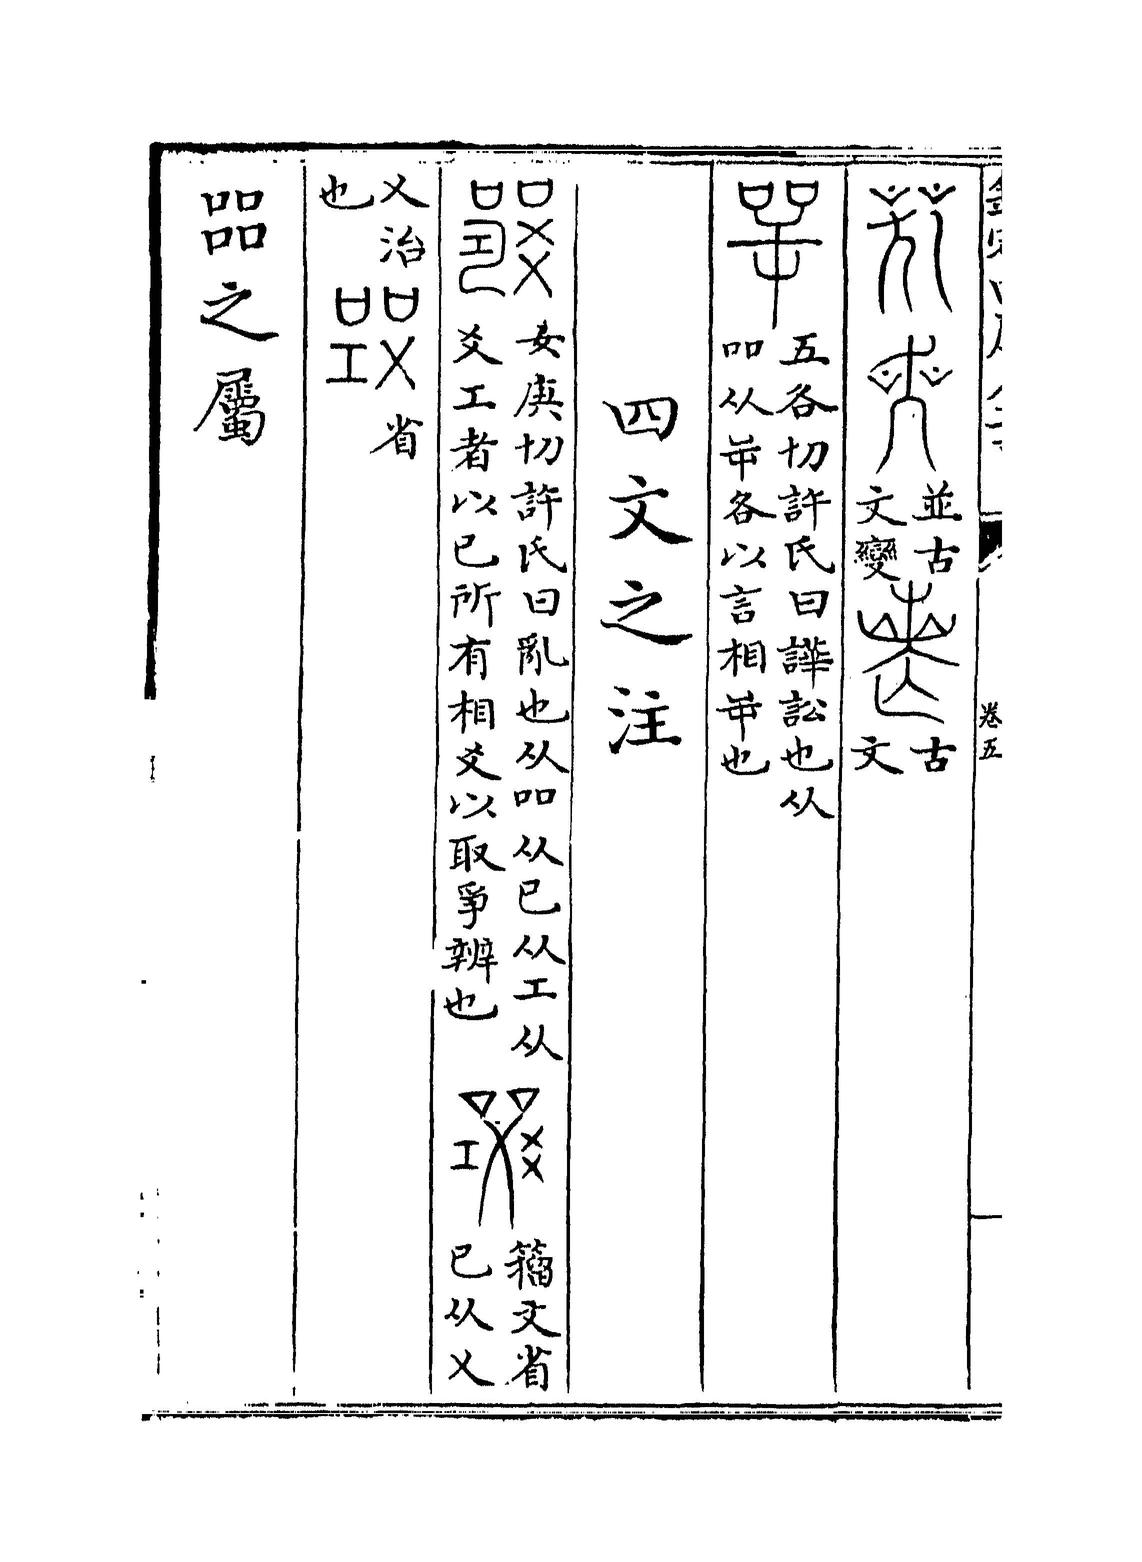 卷五
並古
文變
古
文
五各切許氏曰譁訟也从
吅从屰各以言相屰也
四文之注
女庚切許氏曰亂也从吅从已从工从
爻工者以已所有相爻以取爭辨也
籀文省
已从乂
乂治
也
省
品之屬